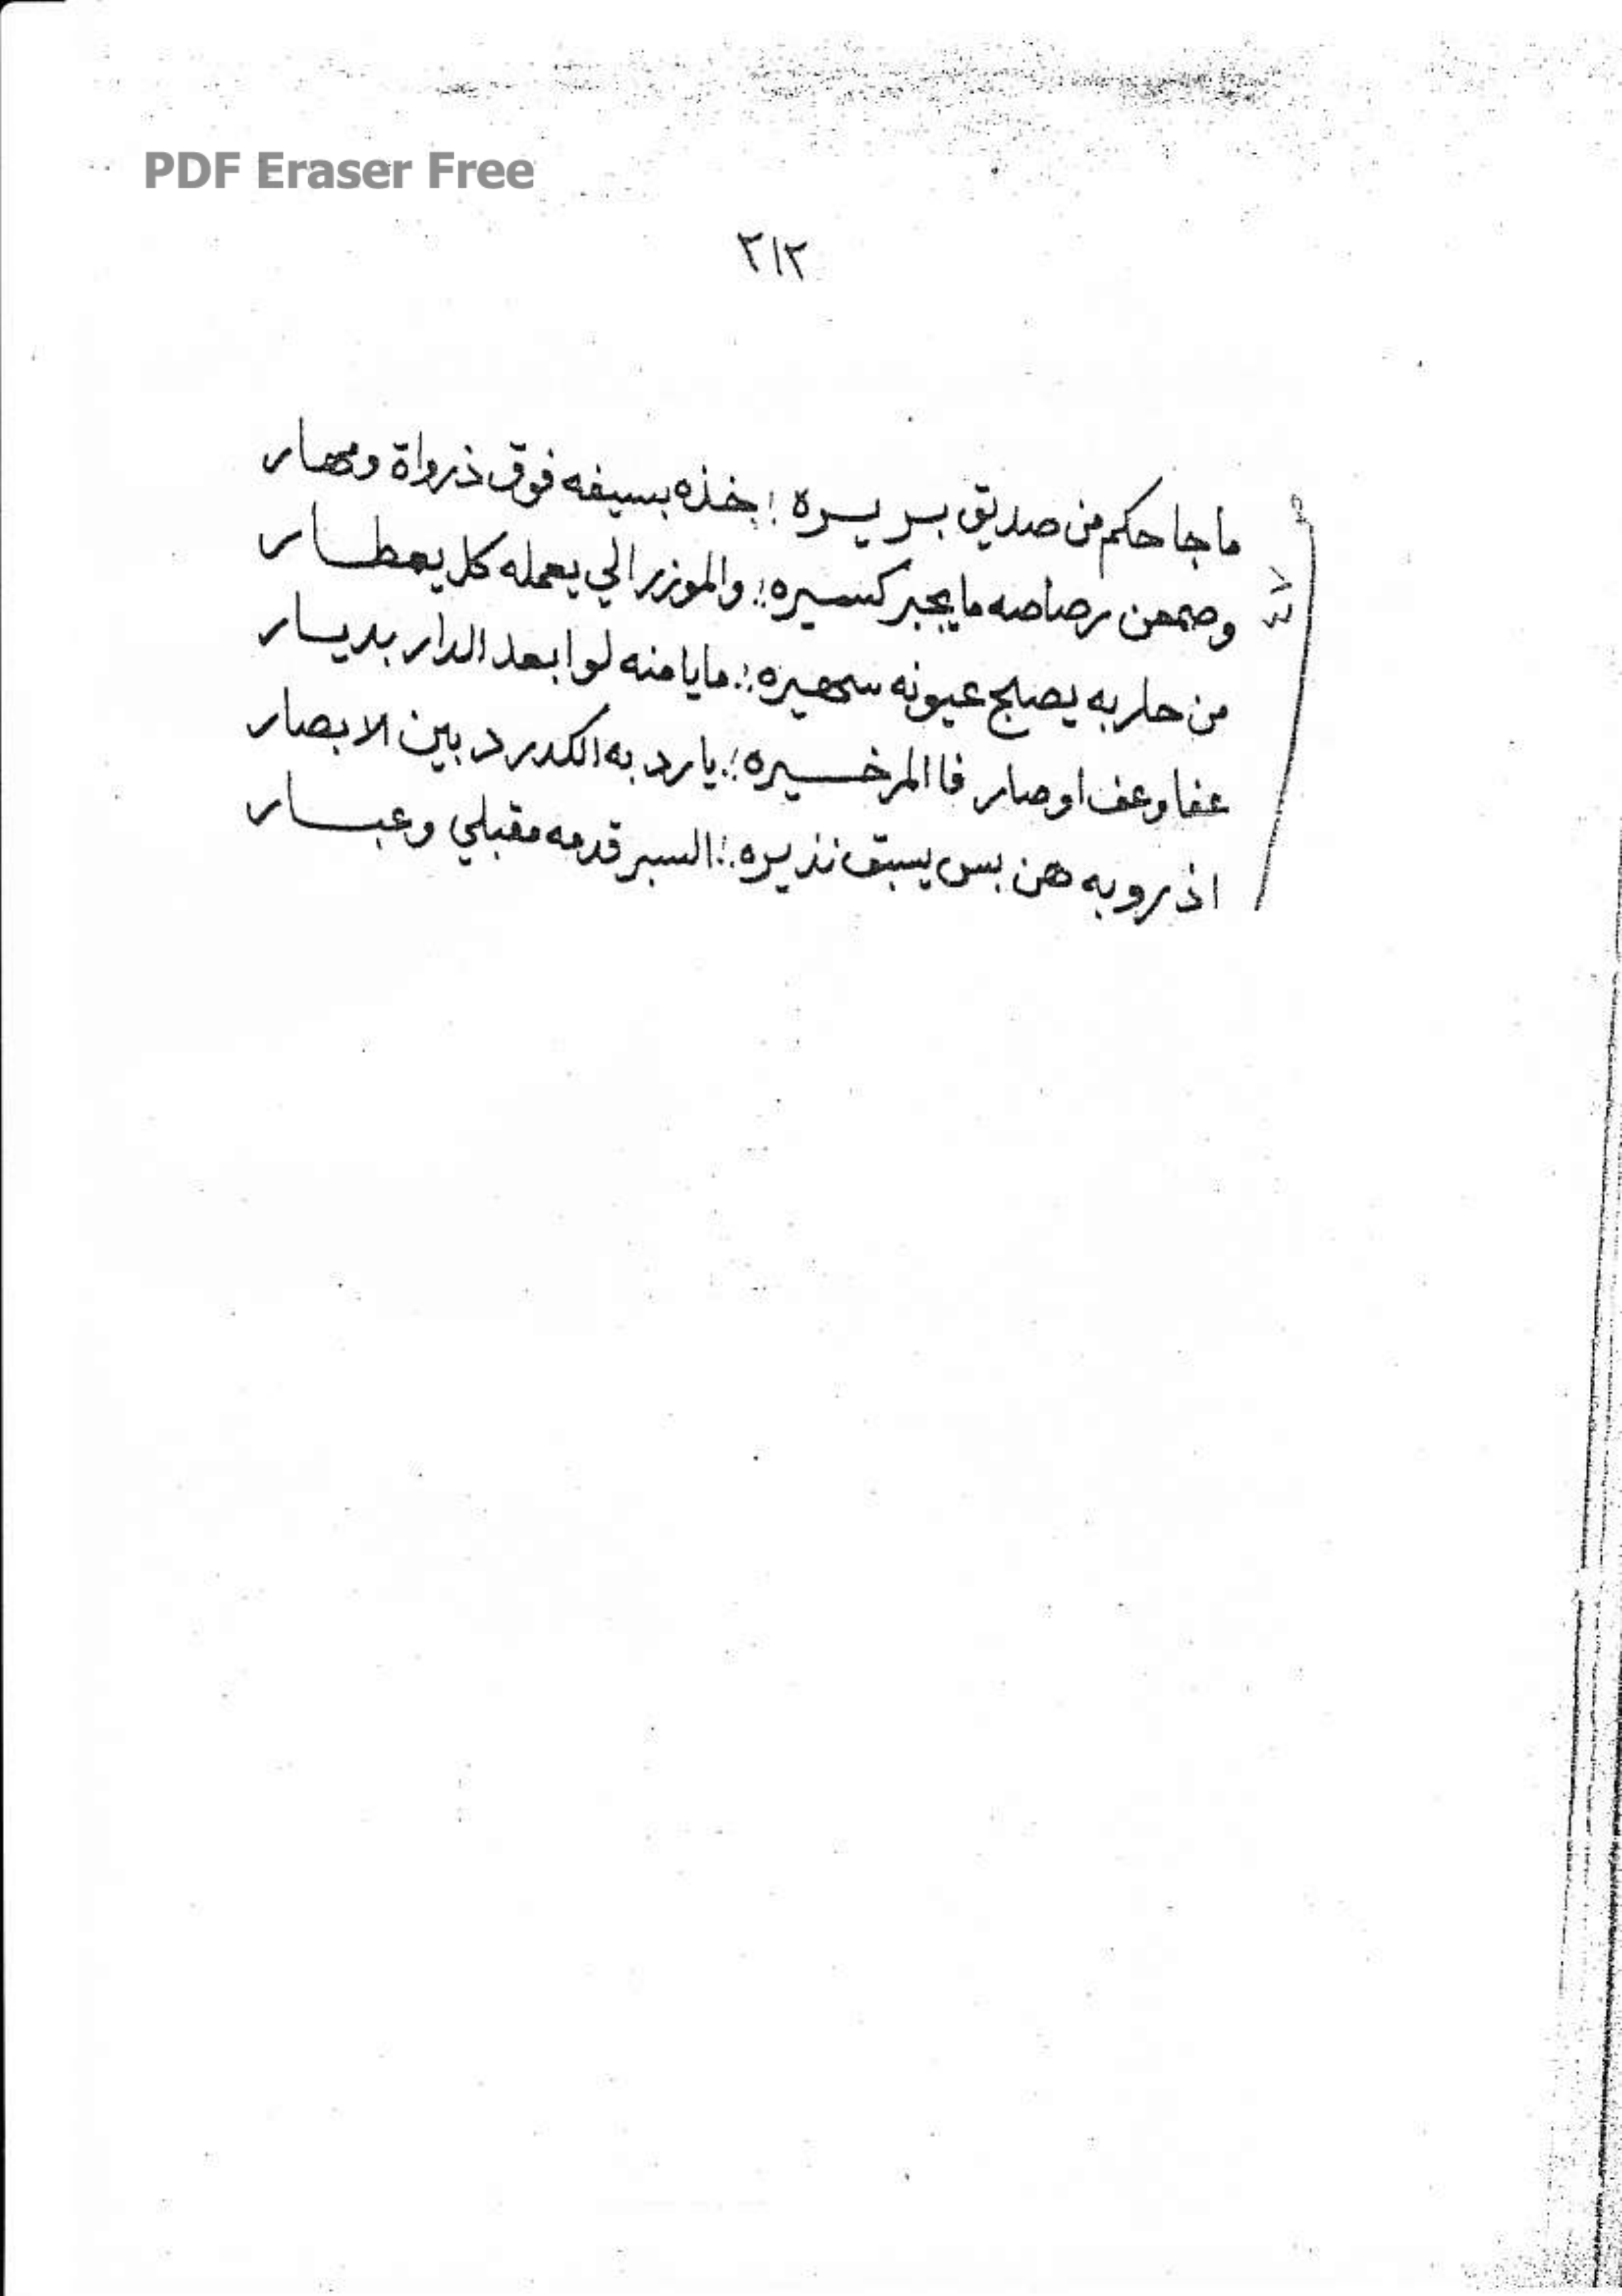 PDF Eraser Free
٣١٢
ما جا حكم من صديق بسر يسره ؛ خذه بسيفه فوق ذرواة ومهار
وصمعن رصاصه ما يجبر كسيره ؛ والموزر الي يعمله كل يعطار
من حاربه يصبح عيونه سهيره ؛ ما يامنه لو ابعد الدار بديار
عفا وعف اوصار فا المرخسيره ؛ يارد به الكدرد بين الابصار
اذروبه هن بس يسبق نذيره ؛ السبر قدمه مقبلي وعبار